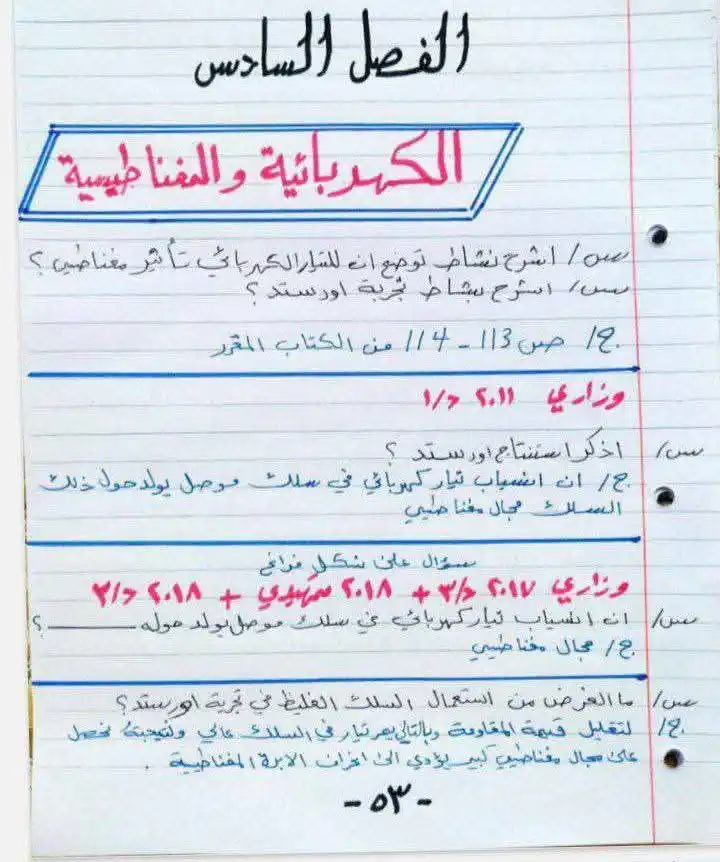 الفصل السادس
الكهربائية والمغناطيسية
س/ اشرح نشاط توضح ان للتيار الكهربائي تأثير مغناطيسي ؟
س/ اشرح نشاط تجربة اورستد ؟
ج/ ص 113 - 114 من الكتاب المقرر
وزاري ٢٠١١ د/١
س/ اذكر استنتاج اورستد ؟
ج/ ان انسياب تيار كهربائي في سلك موصل يولد حول ذلك
السلك مجال مغناطيسي
سؤال على شكل فراغ
وزاري ٢٠١٧ د/٣ + ٢٠١٨ تمهيدي + ٢٠١٨ د/٣
س/ ان انسياب تيار كهربائي في سلك موصل يولد حوله ______ ؟
ج/ مجال مغناطيسي
س/ ما الغرض من استعمال السلك الغليظ في تجربة اورستد ؟
ج/ لتقليل قيمة المقاومة وبالتالي يمر تيار في السلك عالي ونتيجة نحصل
على مجال مغناطيسي كبير يؤدي الى انحراف الابرة المغناطيسية .
- ٥٣ -